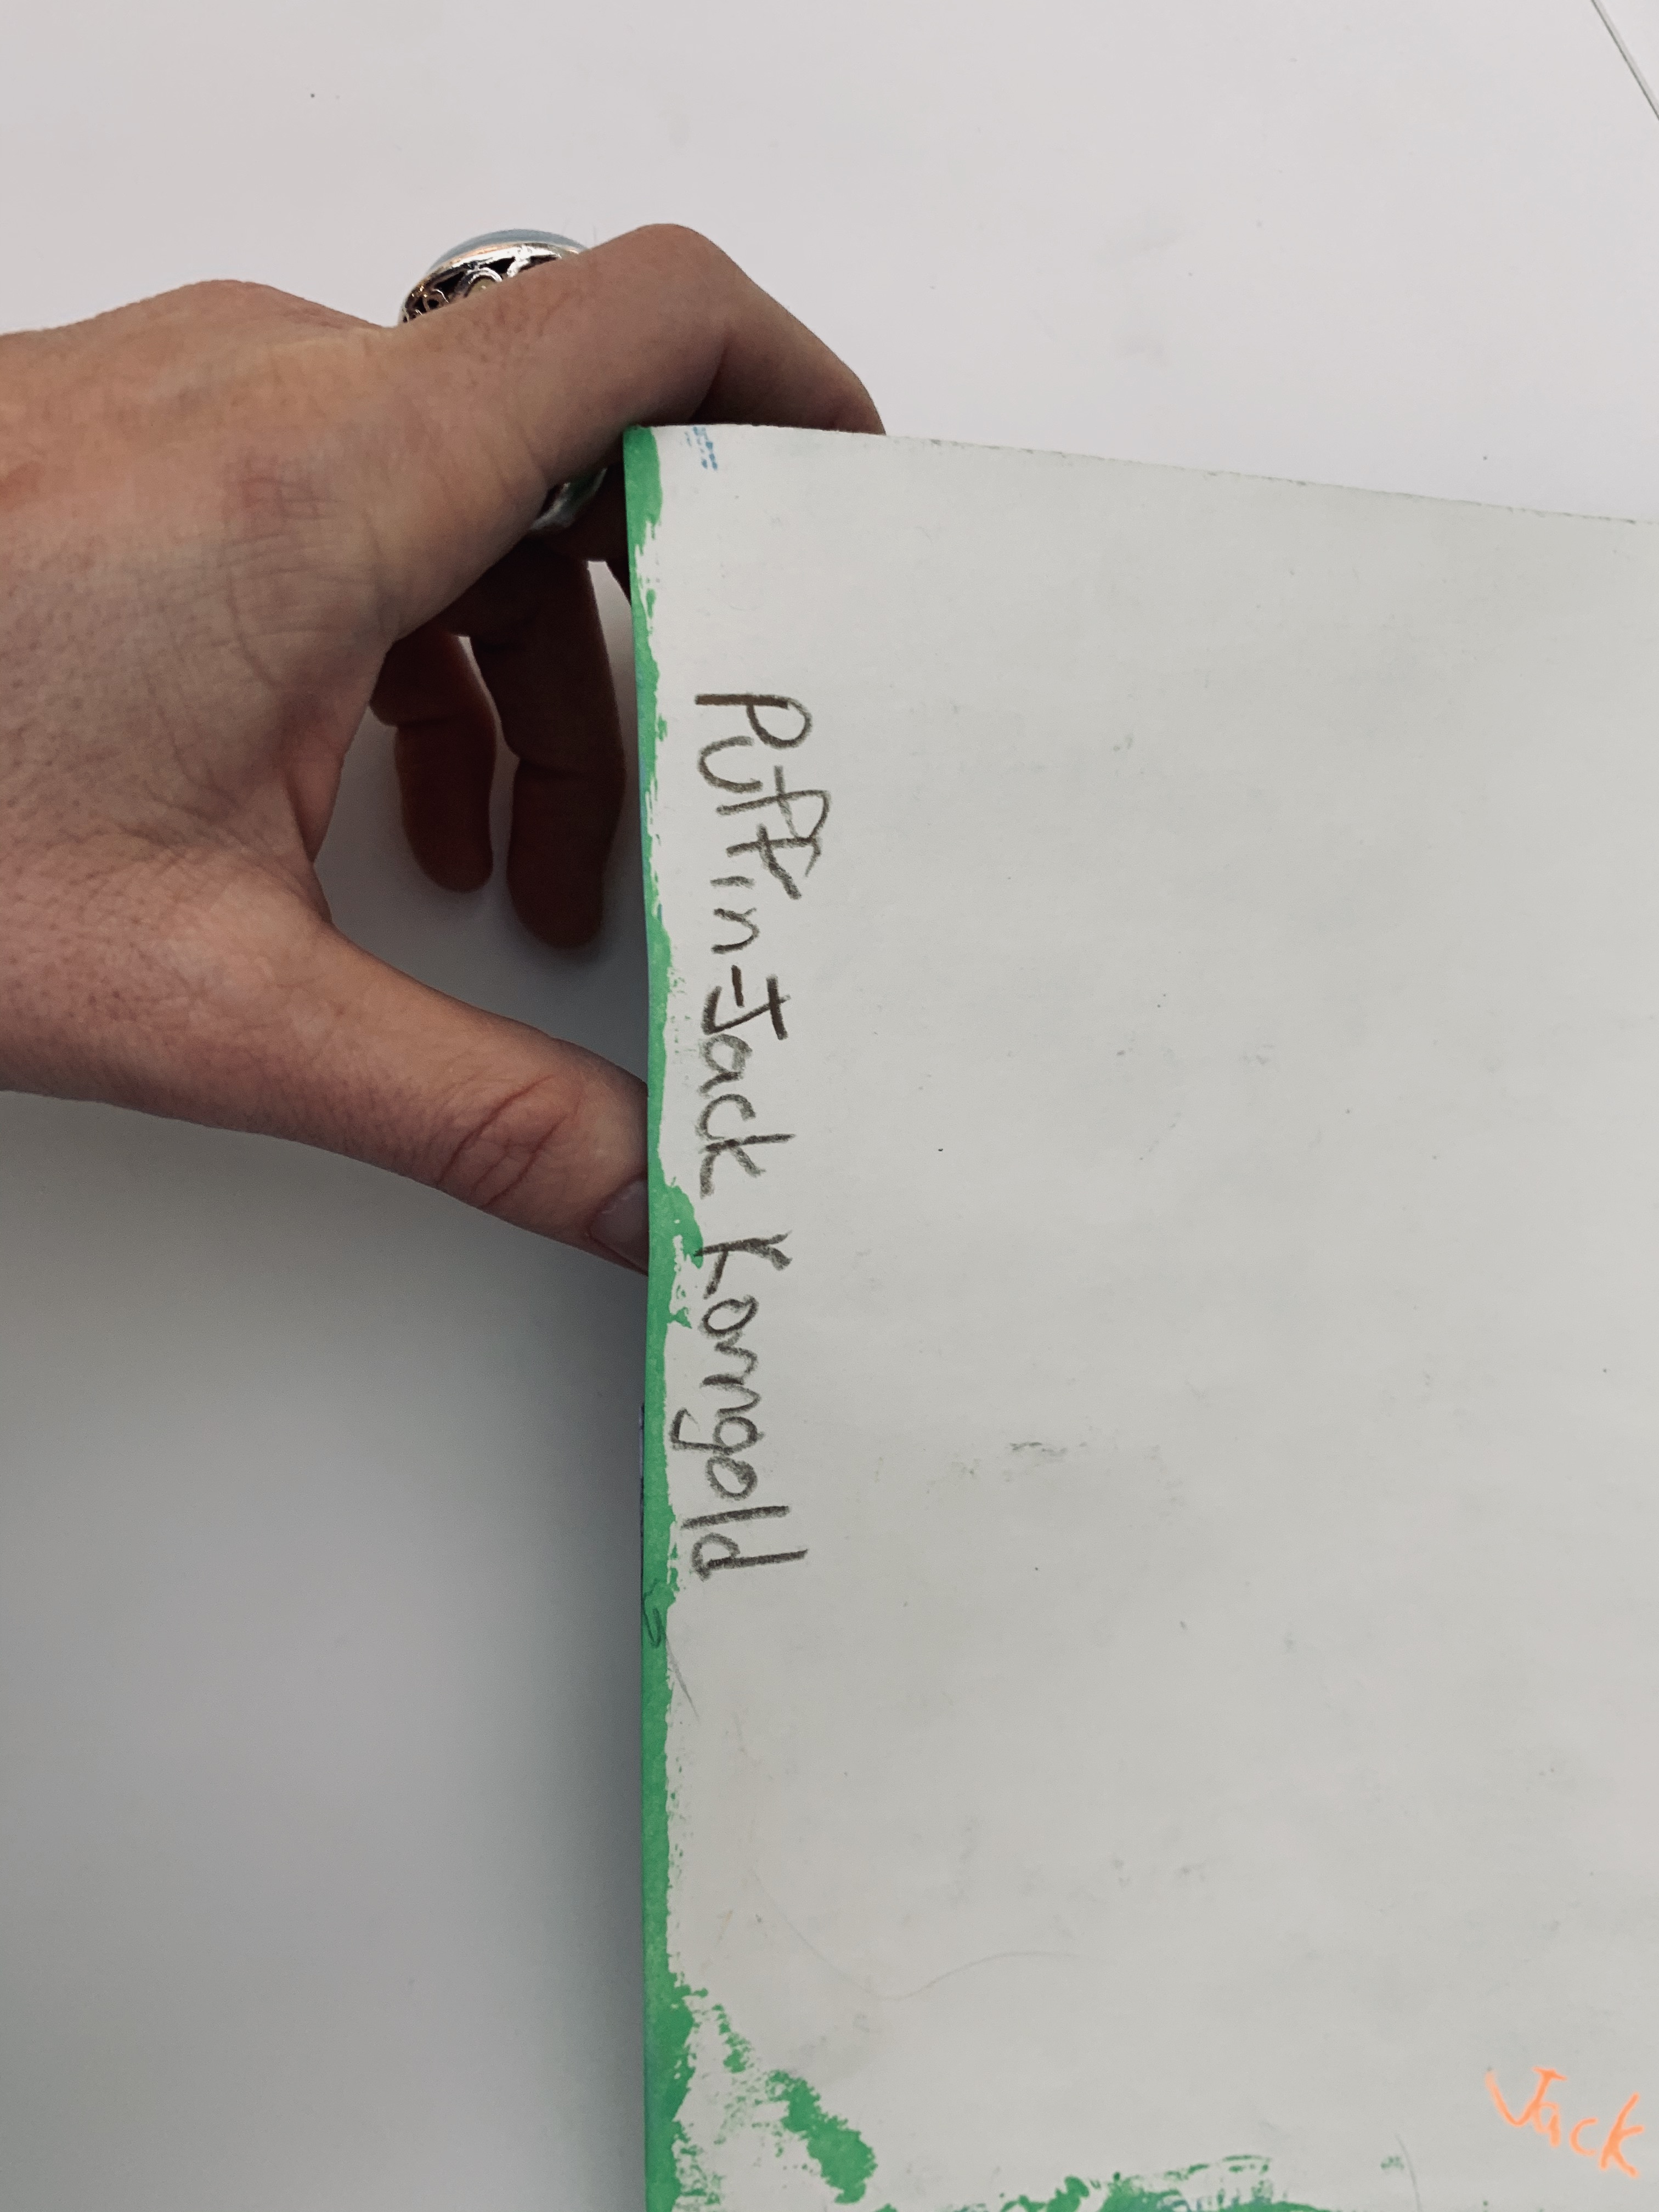 Puffin-Jack Korngold
Jack